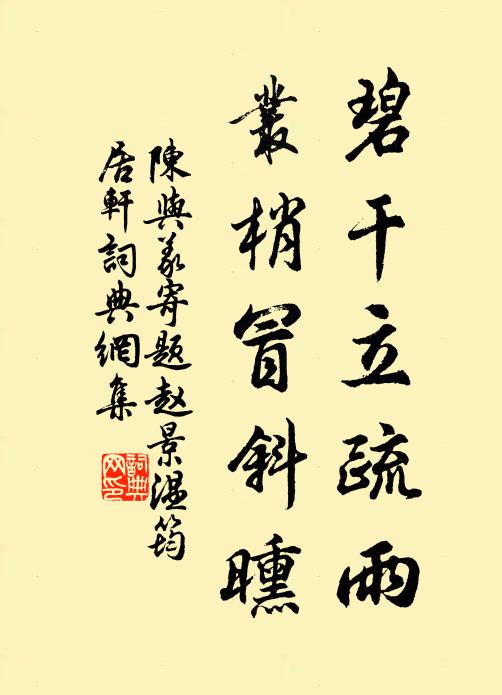 碧干立疏雨
叢梢冒斜曛
陳與義寄題趙景溫筠
居軒詞典網集
詞典網印